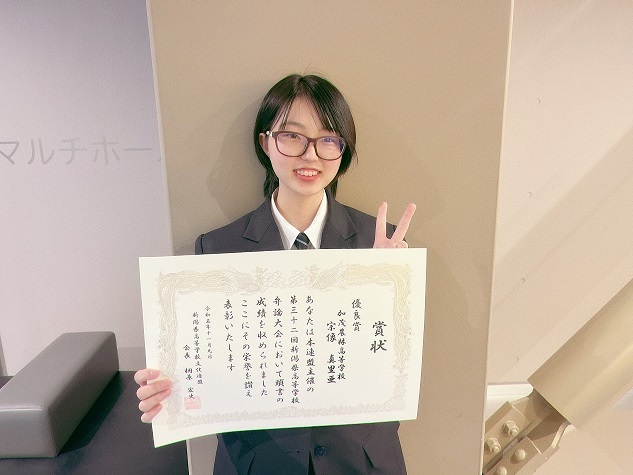 マルチホー
賞状
優良賞
加茂農林高等学校
宗像 真里亜
あなたは本連盟主催の
第三十二回新潟県高等学校
弁論大会において頭書の
成績を収められました
ここにその栄誉を讃え
表彰いたします
令和五年十一月九日
新潟県高等学校文化連盟
会長